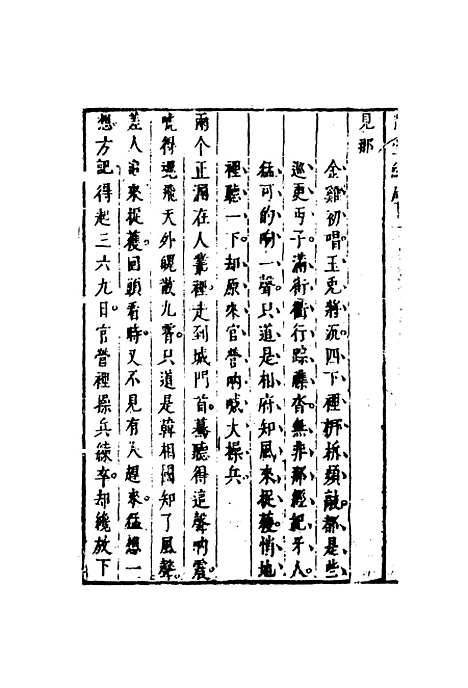 見那
金雞初唱玉兎將沉四下裡梆柝頻敲都是些
巡更丐子滿街衢行踪雜沓無非那經紀牙人。
猛可的吶一聲只道是相府知風來捉獲悄地
裡聽一下却原來官營吶喊大操兵
兩个正漏在人叢裡走到城門首驀聽得這聲吶震。
唬得魂飛天外魄散九霄只道是韓相國知了風聲。
差人追來捉獲回頭看時又不見有人趕來猛想一
想方記得起三六九日官營裡操兵練卒却纔放下